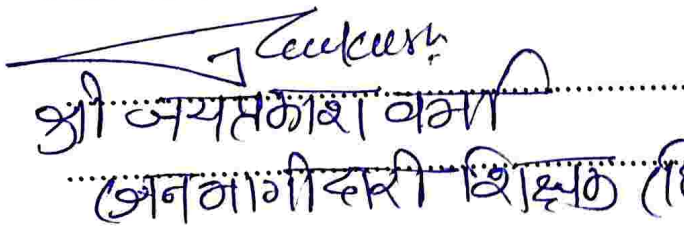 श्री जयप्रकाश वर्मा
(जनभागीदारी शिक्षक (हि